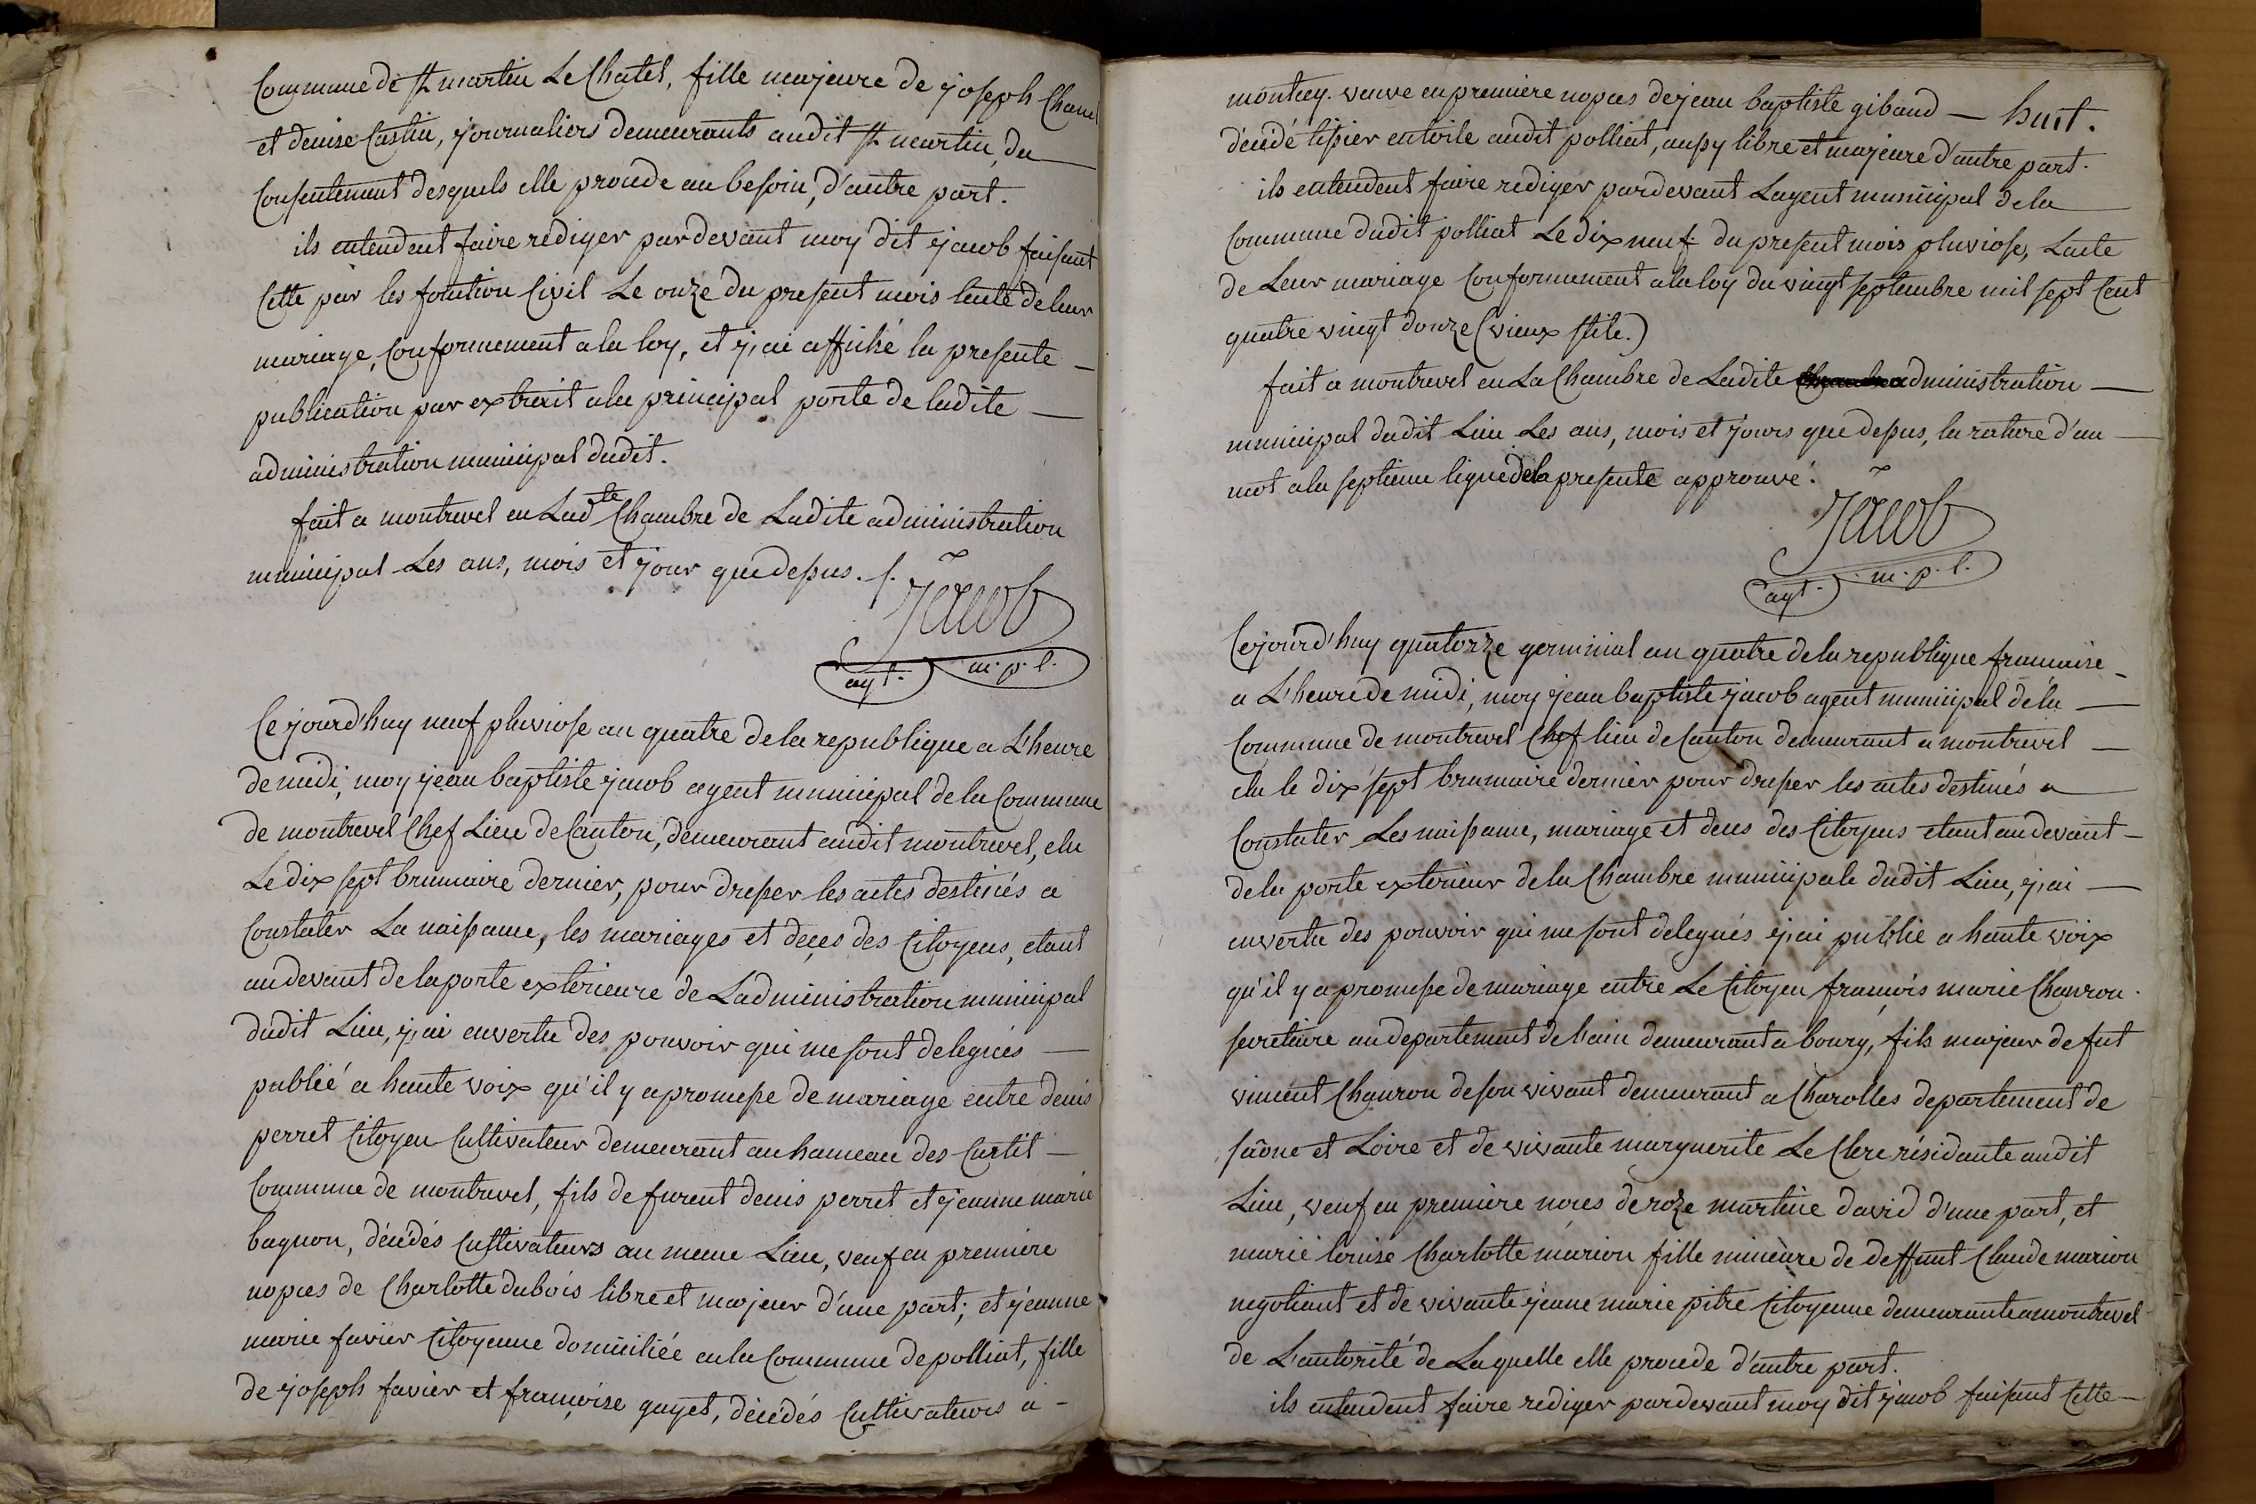 Commune de St martin Le Chatel, fille majeure de joseph Cham
et denise Castin, journaliers demeurants audit St martin, du
Consentement desquels elle procede au besoin, d'autre part.
ils entendent faire rediger pardevant moy dit jacob faisant
Cette par les fonction Civil Le onze du present mois lacte de leur
mariage, Conformement a la loy, et j'ai affiché la presente
publication par extrait a la principal porte de ladite
administration municipal dudit.
fait a montrevel en Ladte Chambre de Ladite administration
municipal Les ans, mois et jour que dessus. /.
Jacob
agt. m.p.l.
Ce jourd'huy neuf pluviose an quatre de la republique a L'heure
de midi, moy jean baptiste jacob agent municipal de la Commune
de montrevel Chef Lieu de Canton, demeurant audit montrevel, elu
Le dix sept brumaire dernier, pour dresser les actes destinés a
Constater La naissance, les mariages et deces des Citoyens, etant
au devant de la porte exterieure de Ladministration municipal
dudit Lieu, j'ai en vertu des pouvoir qui me sont delegués
publié a haute voix qu'il y a promesse de mariage entre denis
perret Citoyen Cultivateur demeurant au hameau des Curtit
Commune de montrevel, fils de furent denis perret et jeanne marie
bagnon, décédés Cultivateurs au meme Lieu, veuf en premiere
nopces de Charlotte dubois libre et majeur d'une part; et jeanne
marie favier Citoyenne domiciliée en la Commune de polliat, fille
de joseph favier et françoise gayet, décédés Cultivateurs a
montay. veuve en premiere nopces de jean baptiste giband — huit.
décédé tissier en toile audit polliat, aussy libre et majeure d'autre part.
ils entendent faire rediger pardevant Lagent municipal de la
Commune dudit polliat Le dix neuf du present mois pluviose, Lacte
de Leur mariage Conformement a la loy du vingt septembre mil sept Cent
quatre vingt douze (vieux stile.)
fait a montrevel en La Chambre de Ladite administration
municipal dudit Lieu Les ans, mois et jours que dessus, la rature d'un
mot a la septieme ligne de la presente approuvé.
Jacob
agt. m.p.l.
Cejourd'huy quatorze germinal an quatre de la republique francaise
a L'heure de midi, moy jean baptiste jacob agent municipal de la
Commune de montrevel Chef lieu de Canton demeurant a montrevel
elu le dix sept brumaire dernier pour dresser les actes destinés a
Constater Les naissance, mariage et deces des Citoyens etant au devant
de la porte exterieur de la Chambre municipale dudit Lieu, j'ai
en vertu des pouvoir qui me sont delegués j'ai publié a haute voix
qu'il y a promesse de mariage entre Le Citoyen francois marie Chanron
secretaire au departement de l'ain demeurant a bourg, fils majeur de fut
vincent Chanron de son vivant demeurant a Charolles departement de
saône et Loire et de vivante marguerite Le Clerc résidante audit
Lieu, veuf en premiere noces de roze martine david d'une part, et
marie louise Charlotte marion fille mineure de deffunt Claude marion
negotiant et de vivante jeane marie pitre Citoyenne demeurante a montrevel
de L'autorité de Laquelle elle procede d'autre part.
ils entendent faire rediger pardevant moy dit jacob faisant Cette